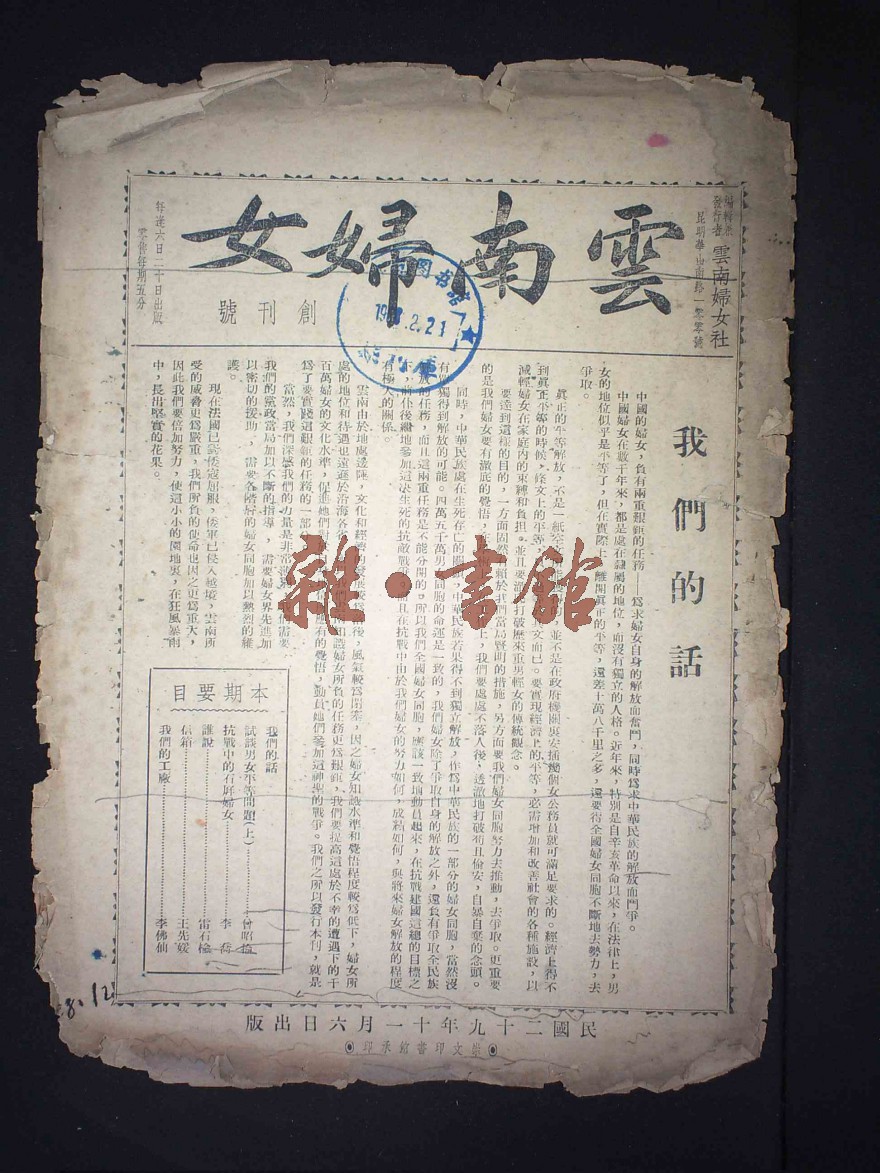 編輯兼
發行者
雲南婦女社
昆明華山南路一零零號
雲南婦女
創刊號
每逢六日二十日出版
零售每期五分
我們的話
中國的婦女，負有兩重艱鉅的任務——爲求婦女自身的解放而奮鬥，同時爲求中華民族的解放而鬥爭。
中國婦女在數千年來，都是處在隸屬的地位，而沒有獨立的人格。近年來，特別是自辛亥革命以來，在法律上，男
女的地位似乎是平等了，但在實際上，離開眞正的平等，還差十萬八千里之多，還要待全國婦女同胞不斷地去努力，去
爭取。
眞正的平等解放，不是一紙空 並不是在政府機關裏安插幾個女公務員就可滿足要求的。經濟上得不
到眞正平等的時候，條文上的平等， 條文而已。要實現經濟上的平等，必需增加和改善社會的各種施設，以
減輕婦女在家庭內的束縛和負担。並且要 打破歷來重男輕女的傳統觀念。
要達到這樣的目的，一方面固然 賴於我們當局賢明的措施，另方面要我們婦女同胞努力去推動，去爭取。更重要
的是我們婦女要有澈底的覺悟， 上，我們要處處不落人後，透澈地打破苟且偷安，自暴自棄的念頭。
同時，中華民族處在生死存亡的關頭，中華民族若果得不到獨立解放，作爲中華民族的一部分的婦女同胞，當然沒
有單獨得到解放的可能。四萬五千萬男 同胞的命運是一致的，我們婦女除了爭取自身的解放之外，還負有爭取全民族
解放的任務，而且這兩重任務是不能分開的。所以我們全國婦女同胞，應該一致地動員起來，在抗戰建國這總的目標之
下，前仆後繼地參加這決生死的抗敵戰 且在抗戰中由於我們婦女的努力如何，成績如何，與將來婦女解放的程度
有極大的關係。
雲南由於地處邊陲，文化和經濟的發展較爲 後，風氣較爲閉塞，因之婦女知識水準和覺悟程度較爲低下，婦女所
處的地位和待遇也遠遜於沿海各 知識婦女所負的任務更爲艱鉅，我們要提高這處於不幸的遭遇下的千
百萬婦女的文化水準，促進她們 應有的覺悟，動員她們參加這神聖的戰爭。我們之所以發行本刊，就是
爲了要實踐這艱鉅的任務的一部
當然，我們深感我們的力量是非常 我們需要
我們的黨政當局加以不斷的指導，需要婦女界先進加
以密切的援助，需要各階好的婦女同胞加以熱烈的維
護。
現在法國已 倭寇屈服，倭軍已侵入越境，雲南所
受的威脅更爲嚴重，我們所負的使命也因之更爲重大，
因此我們要倍加努力，使這小小的園地裏，在狂風暴雨
中，長出堅實的花果。
本期要目
我們的話
試談男女平等問題（上）……曾昭掄
抗戰中的石屏婦女……李 喬
誰說……雷石榆
信箱……王先媛
我們的工廠……李佛仙
民國二十九年十一月六日出版
崇文印書館承印
雜·書館
8.12